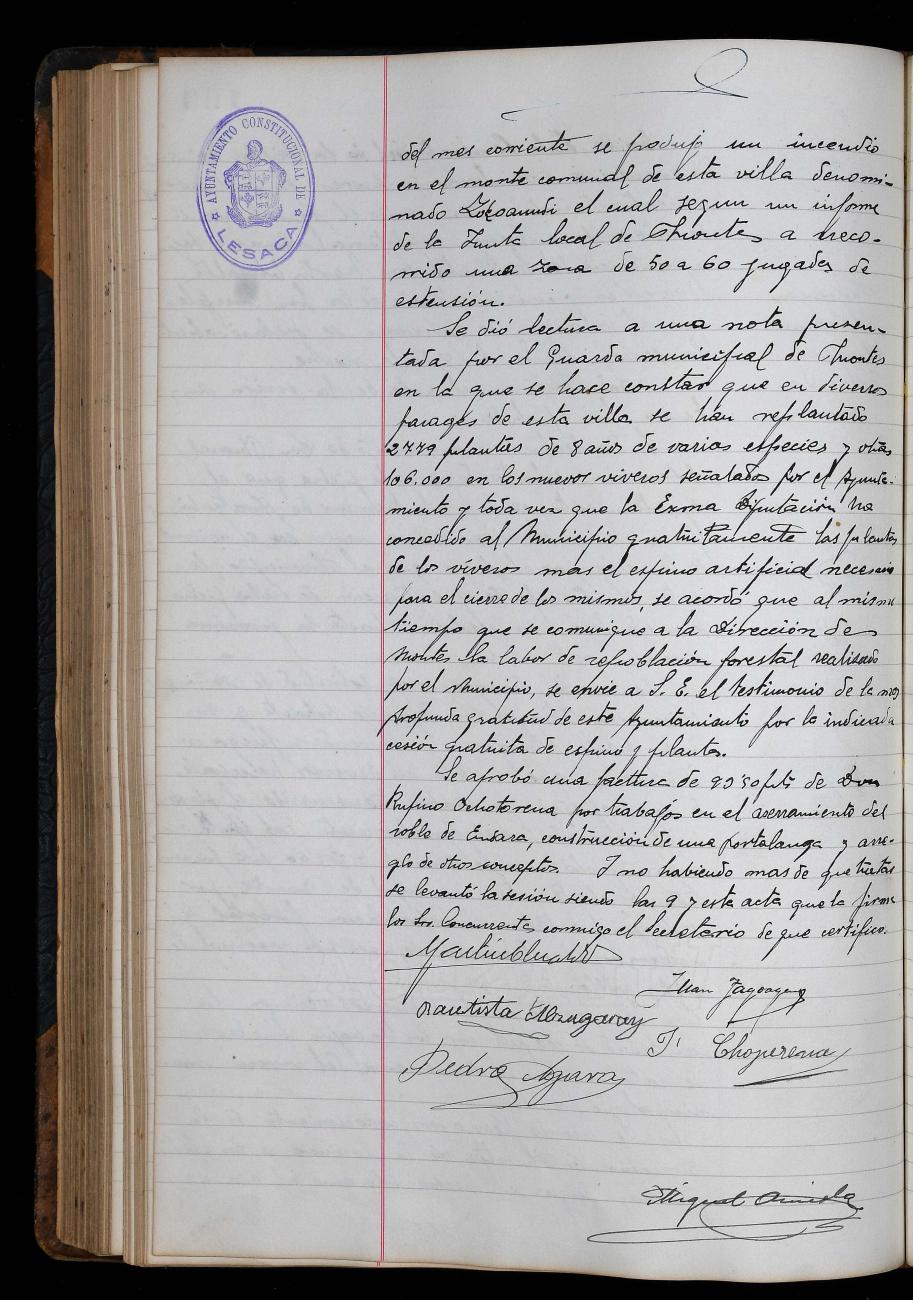 AYUNTAMIENTO CONSTITUCIONAL DE
LESACA
del mes corriente se produjo un incendio
en el monte comunal de esta villa denomi-
nado el cual segun un informe
de la Junta local de Montes a reco-
rrido una zona de 50 a 60 jugadas de
estensión.
Se dió lectura a una nota presen-
tada por el Guarda municipal de Montes
en la que se hase constar que en diversos
parages de esta villa se han replantado
2779 plantas de 8 años de varias especies y otras
106.000 en los nuevos viveros señalados por el Ayunta-
miento y toda vez que la Exma Diputación ha
concedido al Municipio gratuitamente las plantas
de los viveros mas el espino artificial necesario
para el cierre de los mismos, se acordó que al mismo
tiempo que se comunique a la Dirección de
Montes la labor de repoblación forestal realizado
por el Municipio, se envie a S. E. el testimonio de la mas
profunda gratitud de este Ayuntamiento por la indicada
cesión gratuita de espino y plantas.
Se aprobó una factura de pts de Don
Rufino Ochotorena por trabajos en el aserramiento del
roble de Endara, construcción de una portalanga y arre-
glo de otros conceptos. Y no habiendo mas de que tratar
se levantó la sesión siendo las 9 y esta acta que la firman
los Srs. Concurrentes conmigo el Secretario de que certifico.
Juan
Bautista
J. Choperena
Pedro
Miguel